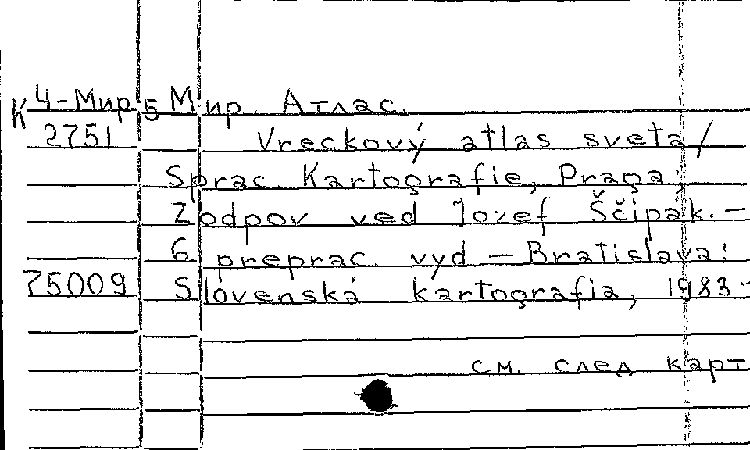 К 4-Мир 5 Мир. Атлас.
2751 Vreckový atlas sveta /
Sprac. Kartografie, Praga;
Zodpov ved Jozef Ščipak. —
6 preprac. vyd — Bratislava:
75009 Slóvenská kartografia, 1983-
см. след карт